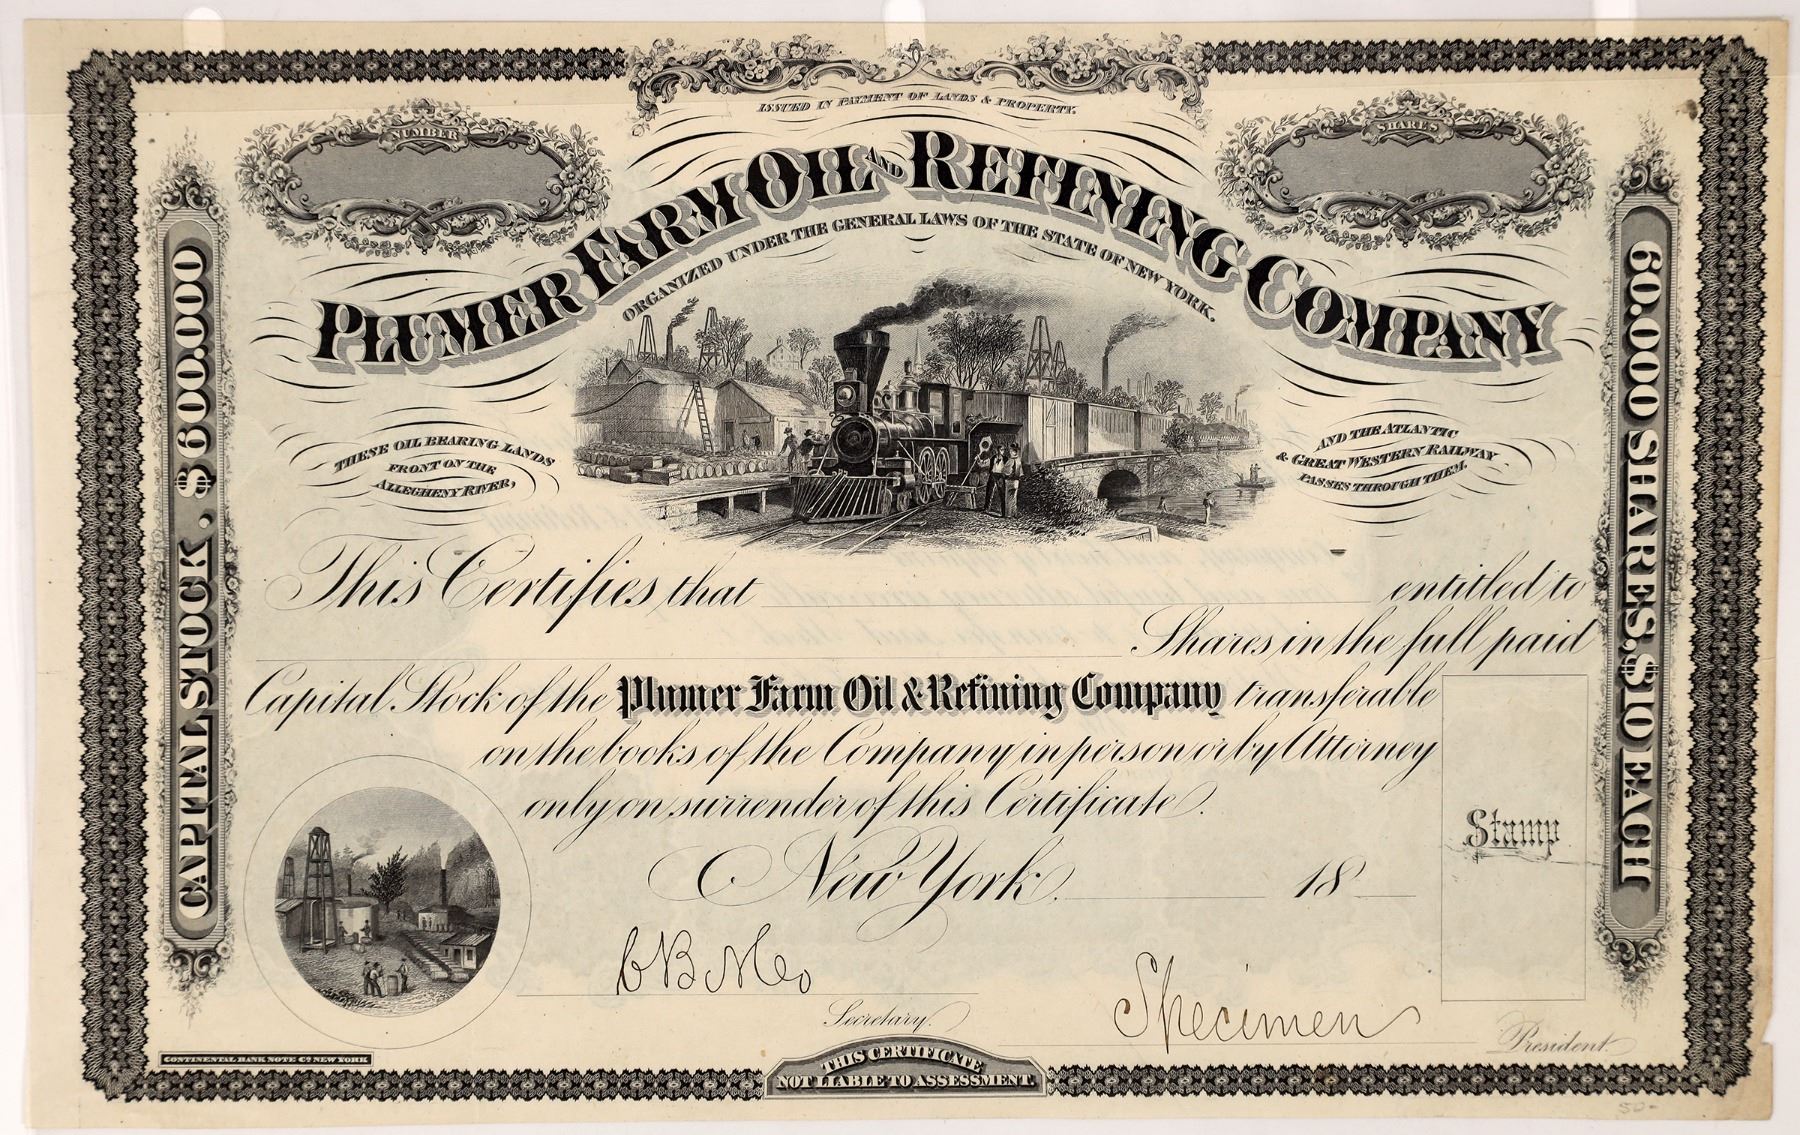 ISSUED IN PAYMENT OF LANDS & PROPERTY.
NUMBER
SHARES
PLUMER FARM OIL AND REFINING COMPANY
ORGANIZED UNDER THE GENERAL LAWS OF THE STATE OF NEW YORK.
CAPITAL STOCK. $600.000
60.000 SHARES. $10 EACH
THESE OIL BEARING LANDS
FRONT ON THE
ALLEGHENY RIVER,
AND THE ATLANTIC
& GREAT WESTERN RAILWAY
PASSES THROUGH THEM.
This Certifies that entitled to
Shares in the full paid
Capital Stock of the Plumer Farm Oil & Refining Company transferable
on the books of the Company in person or by Attorney
only on surrender of this Certificate.
Stamp
New York. 18
CBNCo
Specimen
Secretary.
President.
CONTINENTAL BANK NOTE Co. NEW YORK
THIS CERTIFICATE
NOT LIABLE TO ASSESSMENT.
50-